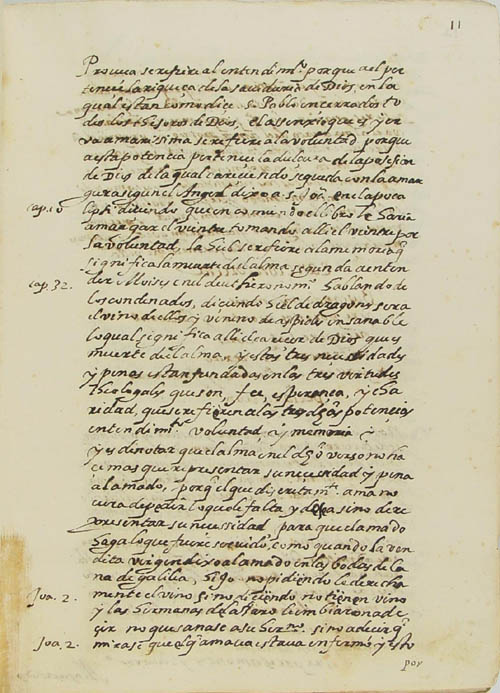 11
Pobreza se refiere al entendimto. porque a el per
tenece la riqueza de la sauiduria de Dios, en la
qual estan como dice S. Pablo encerrados to
dos los thesoros de Dios. el asenxio que es yer
va amarissima se refiere a la voluntad porque
a esta potencia pertenece la dulçura de la posesion
de Dios de la qual careciendo se queda con la amar
gura segun el Angel dixo a S. Joã. en el apoca
cap. 10 lipsi diciendo que en comiendo el libro le haria
amargar el vientre tomando alli el vientre por
la voluntad, la hiel se refiere a la memoria q
significa la muerte del alma segun da a enten
cap. 32. der Moises en el deutheronomi. hablando de
los condenados, diciendo hiel de dragones sera
el vino de ellos y veneno de aspides insanable
lo qual significa alli el carecer de Dios que es
muerte del alma, y estas tres necesidades
y penas estan fundadas en las tres virtudes
theologales que son, fee, esperança, y cha
ridad, que se refieren a las tres dhas potencias
entendimto. voluntad, y memoria
y es de notar que el alma en el dho verso no ha
ce mas que representar su necesidad y pena
al amado, porq el que discretamte. ama no
cura de pedir lo que le falta y desea sino de re
presentar su necessidad para que el amado
haga lo que fuere seruido, como quando la ven
dita virgen dixo al amado en las bodas de Ca
na de galilea, hijo no pidiendole derecha
Joa. 2. mente el vino sino diciendo no tienen vino
y las hermanas de laçaro le imbiaron a de
çir no que sanase a su hermno. sino a decir q
Joa. 2. mirase que el q amaua estaua enfermo y esto
por